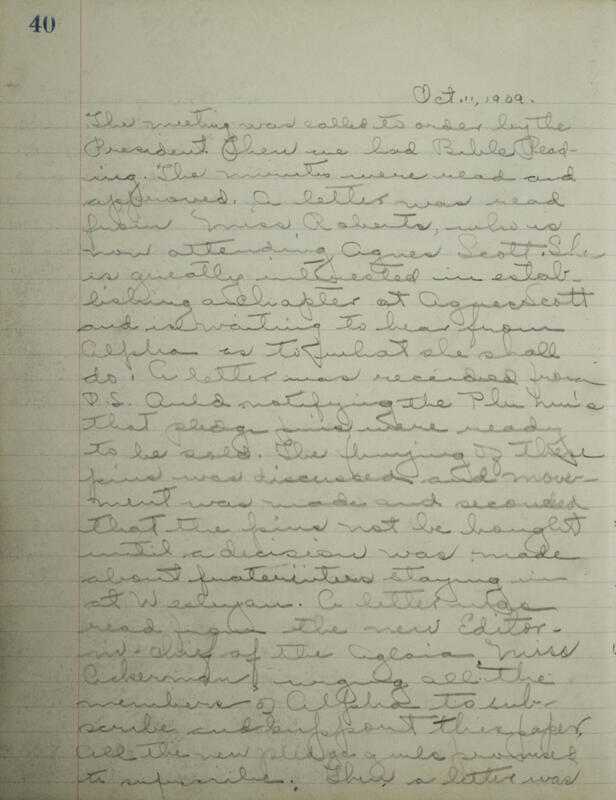 40
Oct. 11, 1909.
The meeting was called to order by the
President. Then we had Bible Read-
ing. The minutes were read and
approved. A letter was read
from Miss Roberts, who is
now attending Agnes Scott. She
is greatly interested in estab-
lishing a chapter at Agnes Scott
and is waiting to hear from
Alpha as to what she shall
do. A letter was received from
D.S. Auld notifying the Phi Mu's
that pledge pins were ready
to be sold. The buying of these
pins was discussed and move-
ment was made and seconded
that the pins not be bought
until a decision was made
about fraternities staying in
at Wesleyan. A letter was
read from the new Editor-
in-chief of the Aglaia, Miss
Ackerman, urging all the
members of Alpha to sub-
scribe and support this paper.
All the new pledge girls promised
to subscribe. Then a letter was